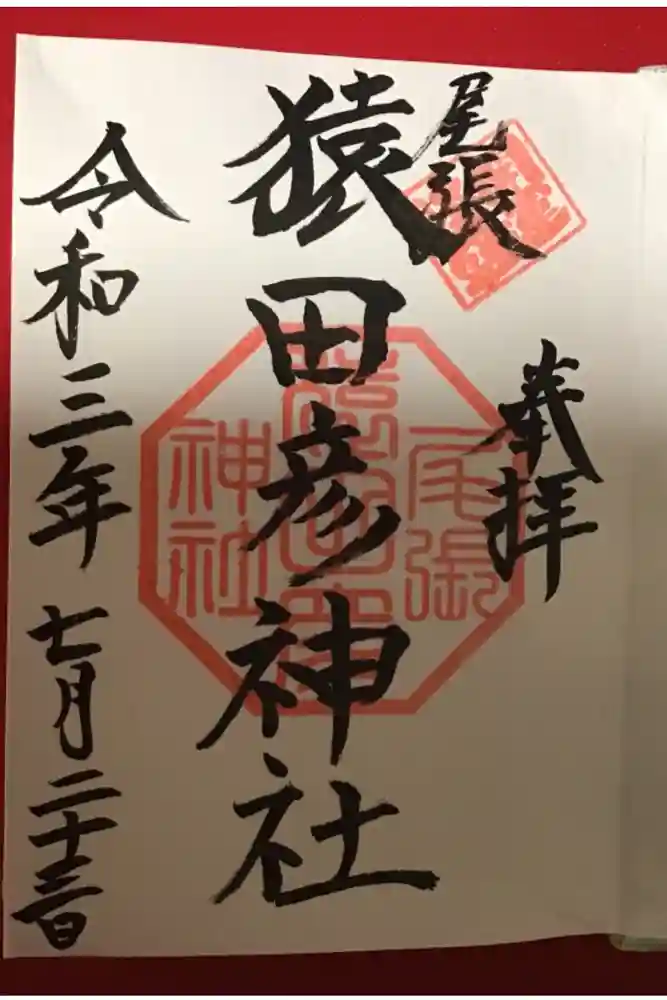 奉拝
尾張
猿田彦神社
尾張
猿田彦
神社
令和三年七月二十三日